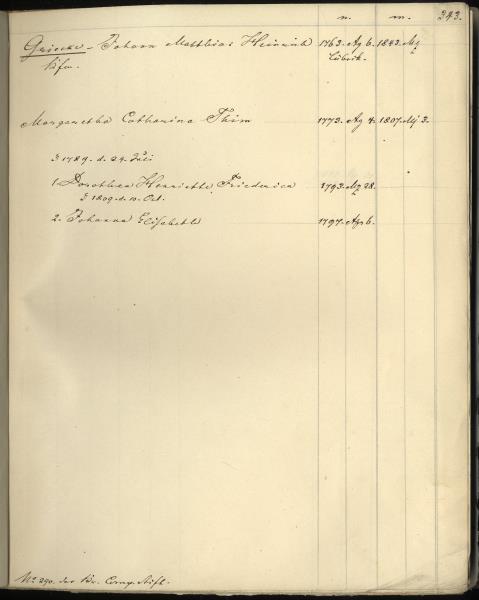 n. m. 243.
Griecke - Johann Matthias Heinrich 1763. Ag 6. 1843. Mz
Kfm. Lübeck.
Margaretha Catharina Thim 1773. Ag 4. 1807. Mj 3.
§ 1789. d. 24. Juli
1. Dorothea Henriette Friederica 1793. Mz 28.
§ 1809. d. 10. Oct.
2. Johanna Elisabeth 1797. Ap 6.
No 290. der Br. Comp. Stift.